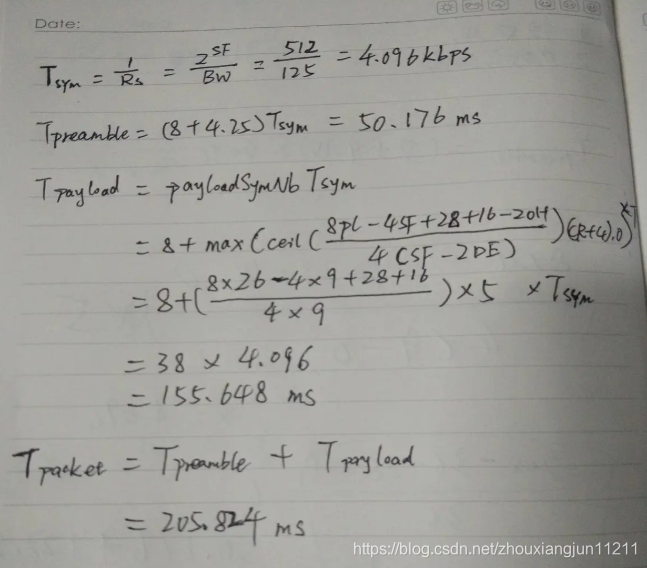 Date:
Tsym = 1/Rs = 2^SF/BW = 512/125 = 4.096kbps
Tpreamble = (8+4.25)Tsym = 50.176 ms
Tpayload = payloadSymNb Tsym
= 8 + max(ceil(8PL-4SF+28+16-20H/4(SF-2DE))(CR+4),0)×T
= 8+(8×26-4×9+28+16/4×9)×5 ×Tsym
= 38 × 4.096
= 155.648 ms
Tpacket = Tpreamble + Tpayload
= 205.824 ms
https://blog.csdn.net/zhouxiangjun11211